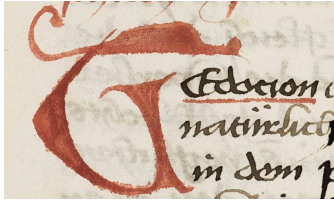 TEdocion
natürlich
in dem